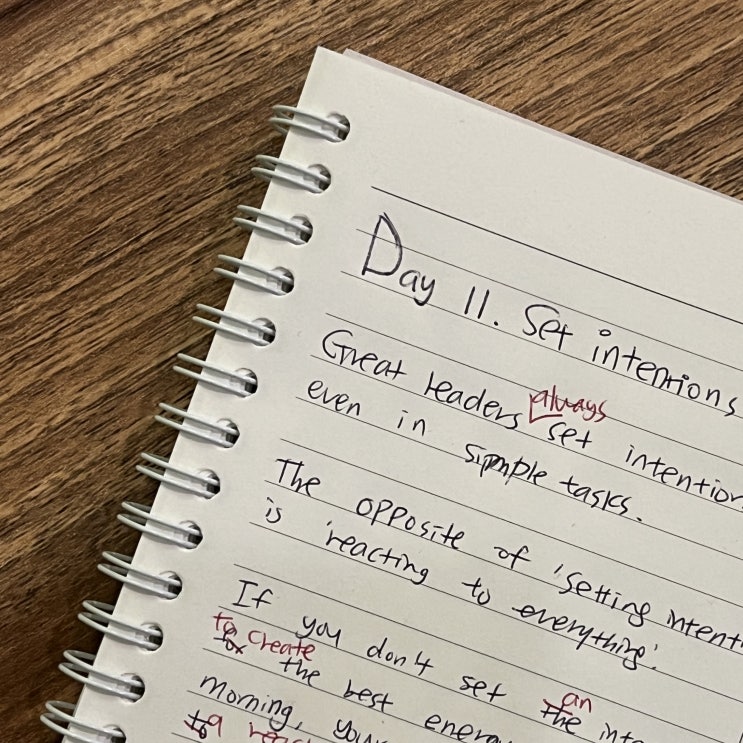 Day 11. Set intentions
Great leaders always set intention
even in simple tasks.
The opposite of 'setting intent
is 'reacting to everything'.
If you don't set the an inte
for to create the best energ
morning, your
to a reac